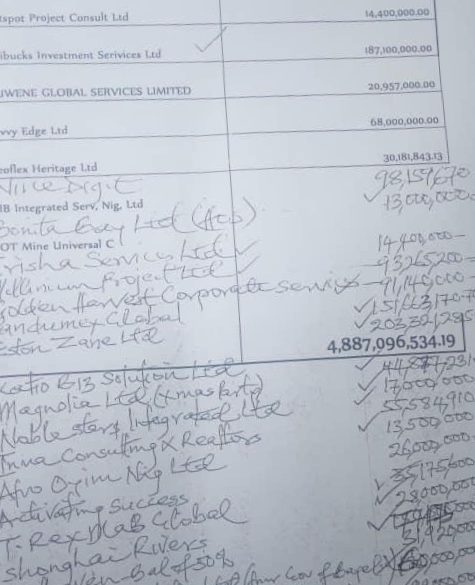 tspot Project Consult Ltd 14,400,000.00
ibucks Investment Serivices Ltd 187,100,000.00
UWENE GLOBAL SERVICES LIMITED 20,957,000.00
vvy Edge Ltd 68,000,000.00
eoflex Heritage Ltd 30,181,843.13
98,159,670
IB Integrated Serv, Nig. Ltd 13,000,000
Bonita Bay Ltd (Acb)
OT Mine Universal C 14,400,000
risha Services Ltd 93,265,200
Millinium Project Ltd 91,140,000
Golden Harvest Corporate services
andumex Global 151,663,170
eston Zane Ltd 203,321,285
4,887,096,534.19
Ratio G13 Solution Ltd
Magnolia Ltd (xmas Party) 17,000,000
Noble stars Integrated Ltd 55,584,910
Inna Consulting & Realtors 13,500,000
Afno Oyim Nig Ltd 26,000,000
Activating Success 35,175,600
T. Rex Global 28,000,000
Shonghai Rivers
Bal of 50% 31,920,000